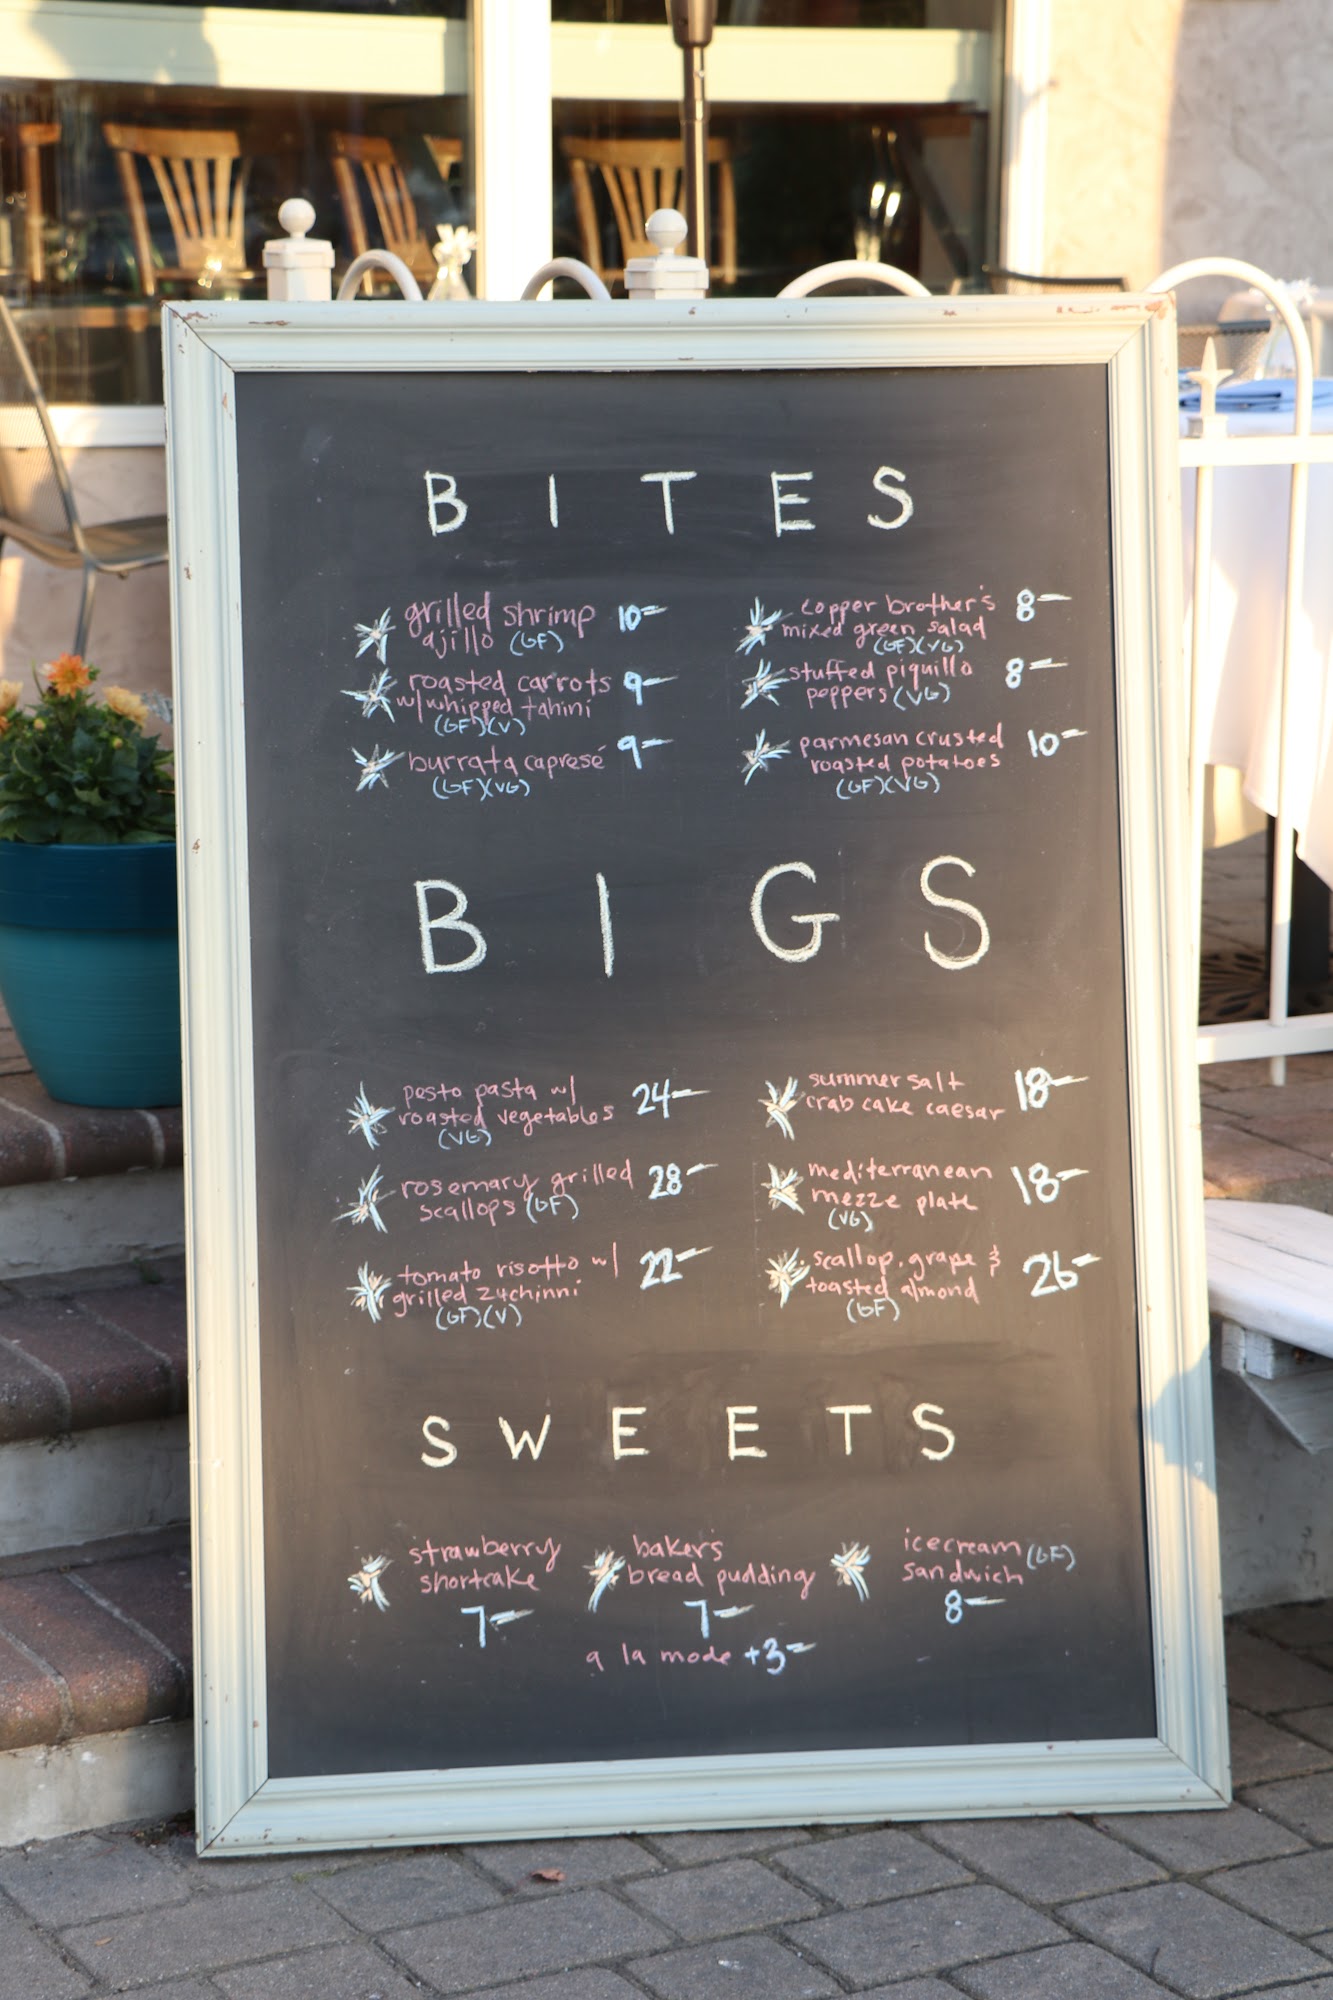 BITES
grilled shrimp 10-
ajillo (GF)
roasted carrots 9-
w/whipped tahini
(GF)(V)
burrata capresé 9-
(GF)(VG)
copper brother's 8-
mixed green salad
(GF)(VG)
stuffed piquillo 8-
peppers (VG)
parmesan crusted 10-
roasted potatoes
(GF)(VG)
BIGS
pesto pasta w/ 24-
roasted vegetables
(VG)
rosemary grilled 28-
scallops (GF)
tomato risotto w/ 22-
grilled zuchinni
(GF)(V)
summer salt 18-
crab cake caesar
mediterranean 18-
mezze plate
(VG)
scallop, grape & 26-
toasted almond
(GF)
SWEETS
strawberry
shortcake
7-
baker's
bread pudding
7-
icecream (GF)
sandwich
8-
a la mode +3-